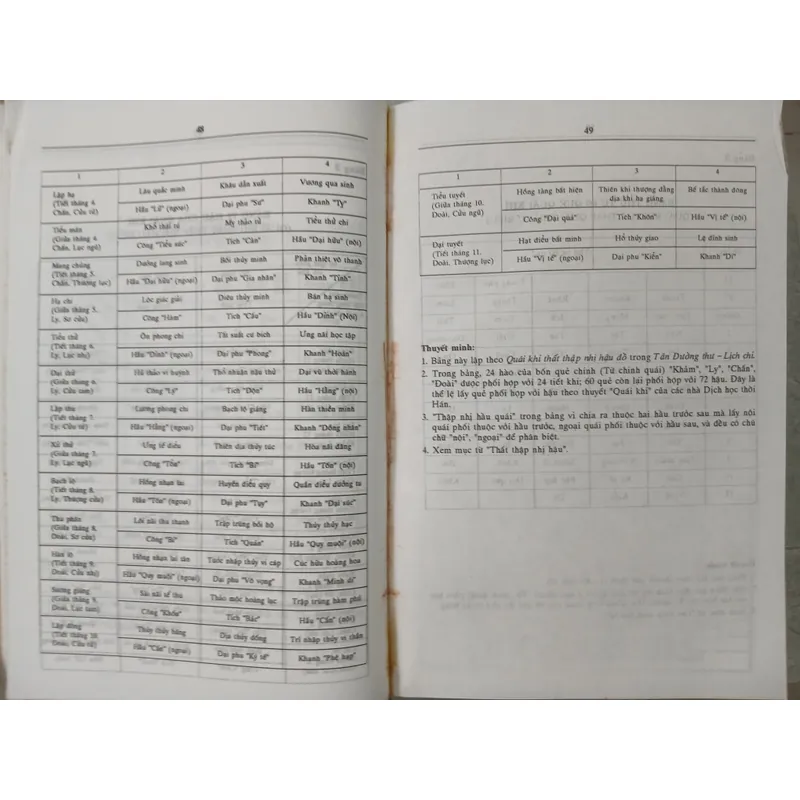 48
1 2 3 4
Lập hạ Lâu quắc minh Khâu dẫn xuất Vương qua sinh
(Tiết tháng 4.
Chấn, Cửu tứ) Hầu "Lữ" (ngoại) Đại phu "Sư" Khanh "Tỵ"
Tiểu mãn Khổ thái tú Mỵ thảo tử Tiểu thử chí
(Giữa tháng 4.
Chấn, Lục ngũ) Công "Tiểu súc" Tích "Càn" Hầu "Đại hữu" (nội)
Mang chủng Đường lang sinh Bối thủy minh Phản thiệt vô thanh
(Tiết tháng 5.
Chấn, Thượng lục) Hầu "Đại hữu" (ngoại) Đại phu "Gia nhân" Khanh "Tỉnh"
Hạ chí Lộc giác giải Diêu thủy minh Bán hạ sinh
(Giữa tháng 5.
Ly, Sơ cửu) Công "Hàm" Tích "Cấu" Hầu "Đỉnh" (Nội)
Tiểu thử Ôn phong chí Tất suất cư bích Ưng nãi học tập
(Tiết tháng 6.
Ly, Lục nhị) Hầu "Đỉnh" (ngoại) Đại phu "Phong" Khanh "Hoán"
Đại thử Hủ thảo vi huỳnh Thổ nhuận nậu thử Đại vũ thời hành
(Giữa tháng 6.
Ly, Cửu tam) Công "Lý" Tích "Độn" Hầu "Hằng" (nội)
Lập thu Lương phong chí Bạch lộ giáng Hàn thiền minh
(Tiết tháng 7.
Ly, Cửu tứ) Hầu "Hằng" (ngoại) Đại phu "Tiết" Khanh "Đồng nhân"
Xử thử Ưng tế điểu Thiên địa thủy túc Hòa nãi đăng
(Giữa tháng 7.
Ly, Lục ngũ) Công "Tổn" Tích "Bĩ" Hầu "Tốn" (nội)
Bạch lộ Hồng nhạn lai Huyền điểu quy Quần điểu dưỡng tu
(Tiết tháng 8.
Ly, Thượng cửu) Hầu "Tốn" (ngoại) Đại phu "Tụy" Khanh "Đại súc"
Thu phân Lôi nãi thu thanh Trập trùng bồi hộ Thủy thủy hạc
(Giữa tháng 8.
Đoài, Sơ cửu) Công "Bí" Tích "Quán" Hầu "Quy muội" (nội)
Hàn lộ Hồng nhạn lai tân Tước nhập thủy vi cáp Cúc hữu hoàng hoa
(Tiết tháng 9.
Đoài, Cửu nhị) Hầu "Quy muội" (ngoại) Đại phu "Vô vọng" Khanh "Minh di"
Sương giáng Sài nãi tế thú Thảo mộc hoàng lạc Trập trùng hàm phủ
(Giữa tháng 9.
Đoài, Lục tam) Công "Khốn" Tích "Bác" Hầu "Cấn" (nội)
Lập đông Thủy thủy băng Địa thủy đống Trĩ nhập thủy vi thần
(Tiết tháng 10.
Đoài, Cửu tứ) Hầu "Cấn" (ngoại) Đại phu "Ký tế" Khanh "Phệ hạp"
49
1 2 3 4
Tiểu tuyết Hồng tàng bất hiện Thiên khí thượng đằng Bế tắc thành đông
(Giữa tháng 10. địa khí hạ giáng
Đoài, Cửu ngũ) Công "Đại quá" Tích "Khôn" Hầu "Vị tế" (nội)
Đại tuyết Hạt điểu bất minh Hổ thủy giao Lệ đỉnh sinh
(Tiết tháng 11.
Đoài, Thượng lục) Hầu "Vị tế" (ngoại) Đại phu "Kiển" Khanh "Di"
Thuyết minh:
1. Bảng này lập theo Quái khí thất thập nhị hậu đồ trong Tân Đường thư – Lịch chí.
2. Trong bảng, 24 hào của bốn quẻ chính (Tứ chính quái) "Khảm", "Ly", "Chấn",
"Đoài" được phối hợp với 24 tiết khí; 60 quẻ còn lại phối hợp với 72 hậu. Đây là
thể lệ lấy quẻ phối hợp với hậu theo thuyết "Quái khí" của các nhà Dịch học thời
Hán.
3. "Thập nhị hầu quái" trong bảng vì chia ra thuộc hai hầu trước sau mà lấy nội
quái phối thuộc với hầu trước, ngoại quái phối thuộc với hầu sau, và đều có chú
chữ "nội", "ngoại" để phân biệt.
4. Xem mục từ "Thất thập nhị hậu".